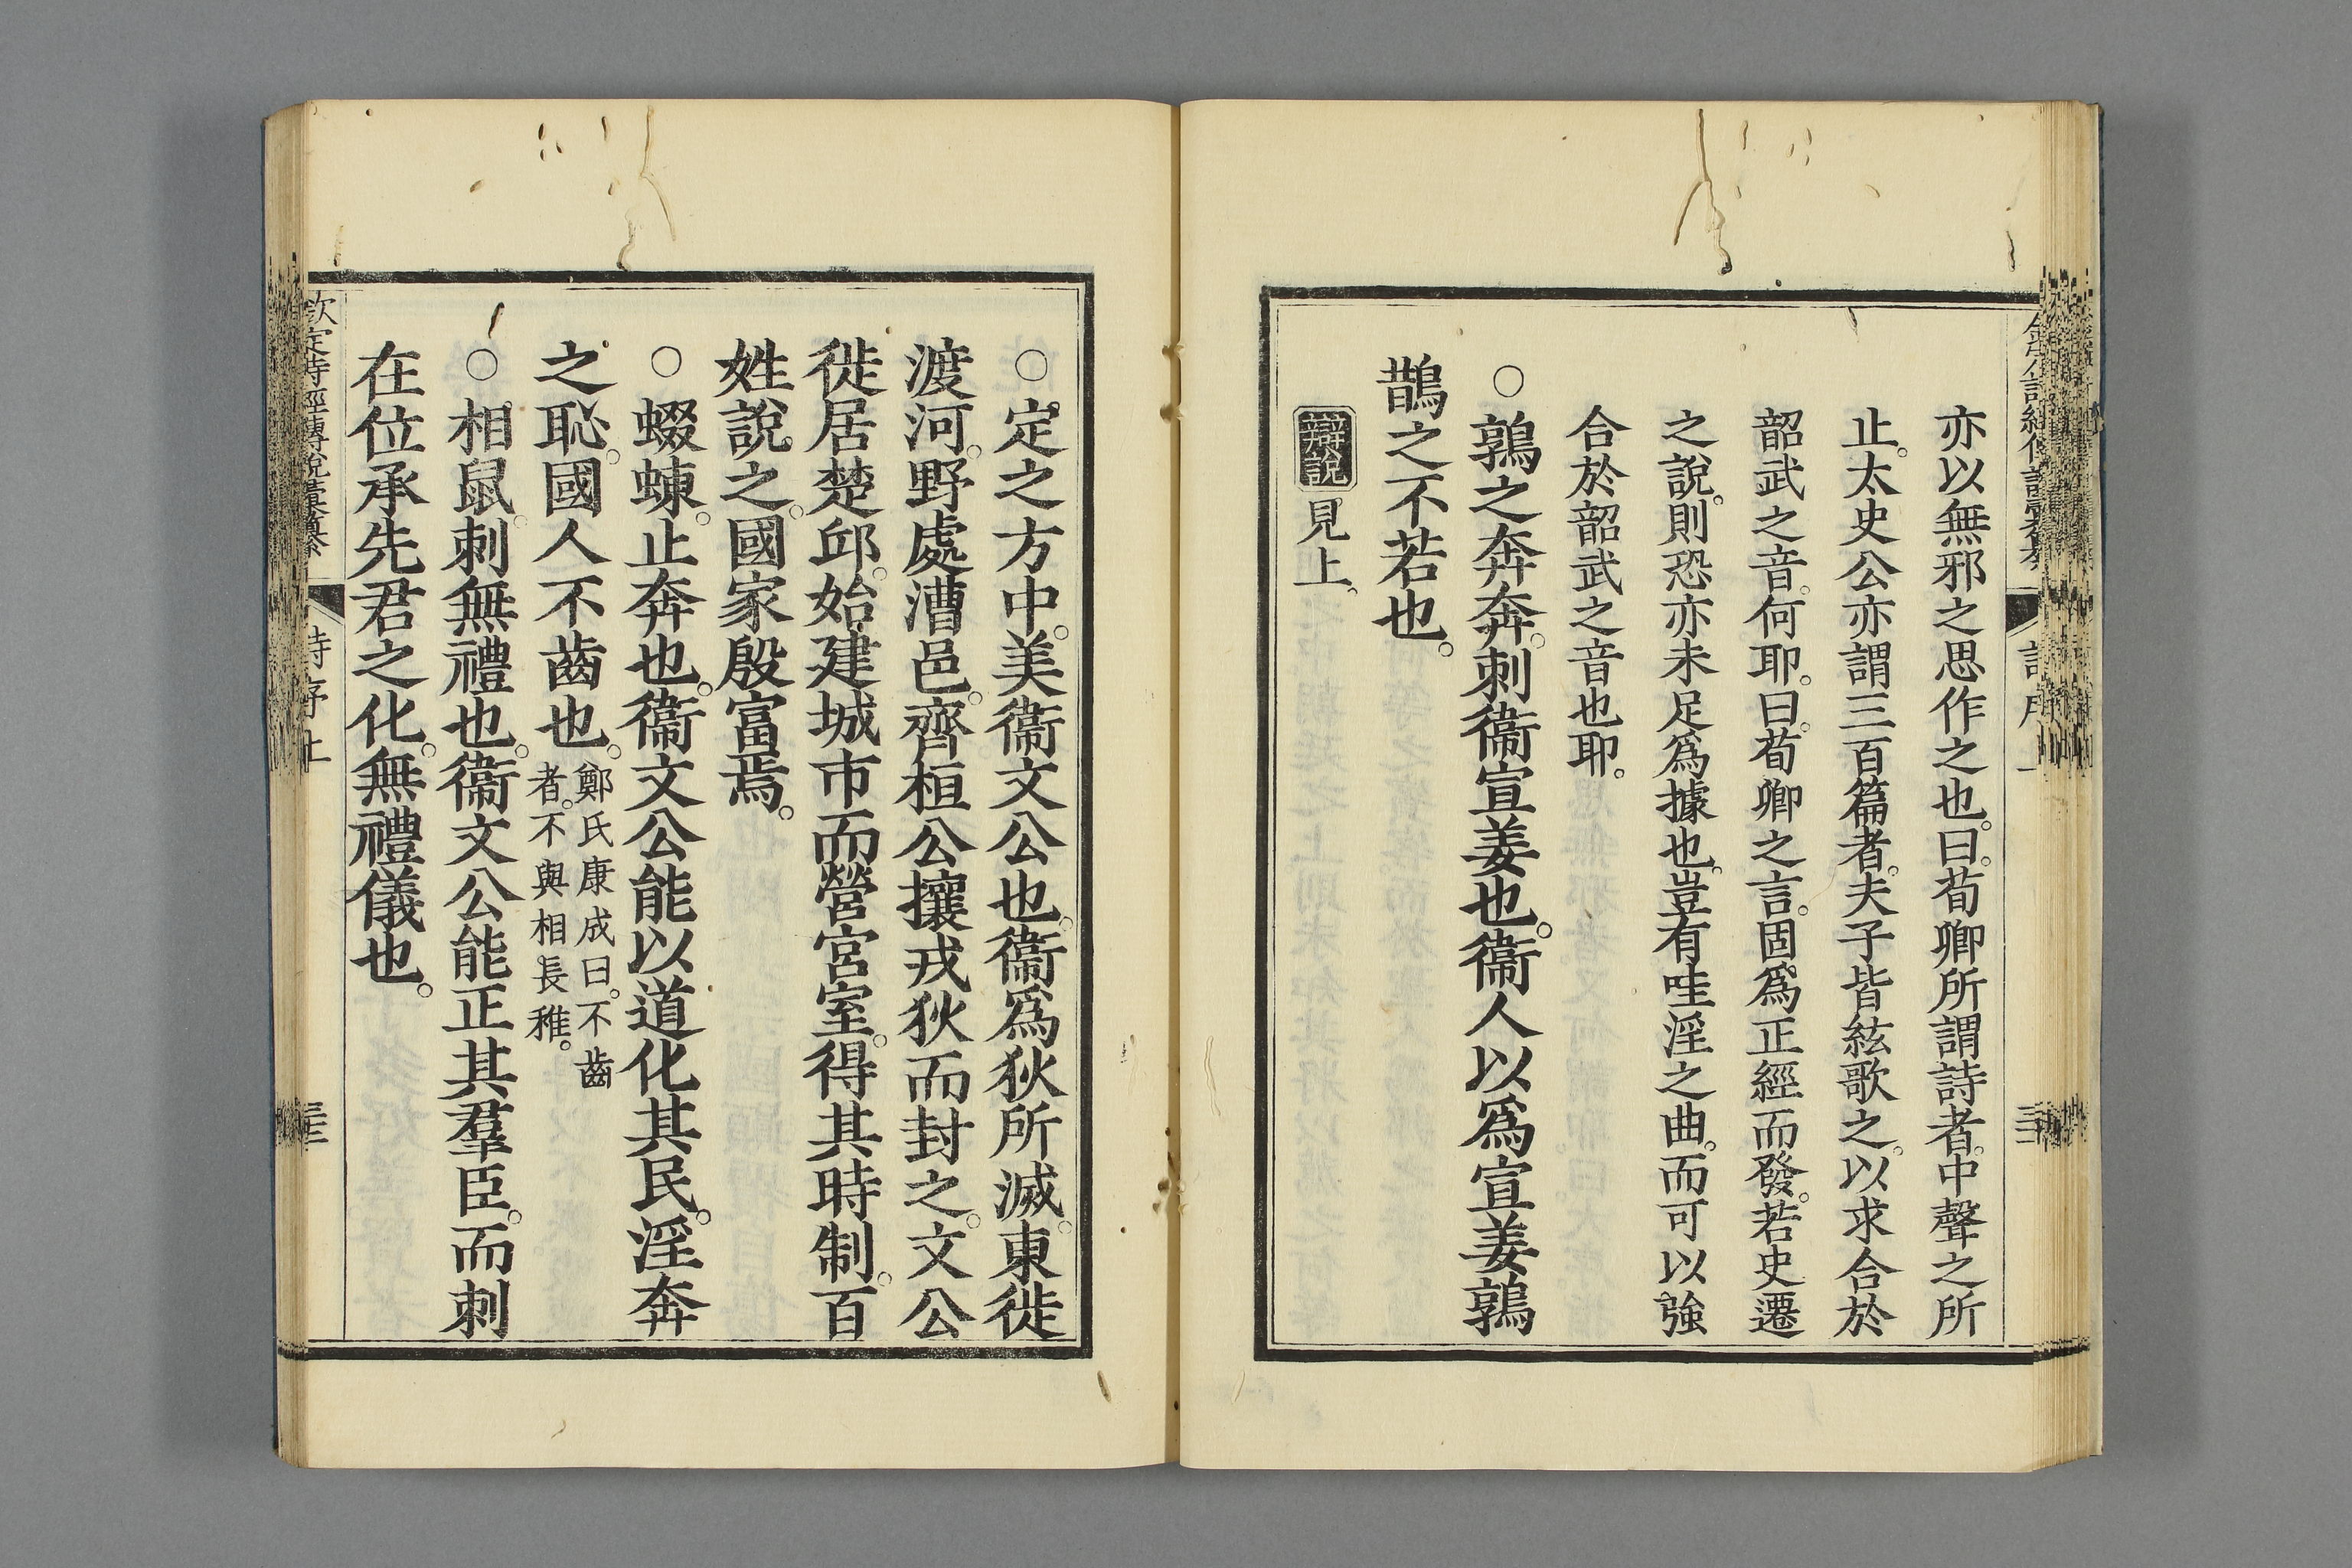 亦以無邪之思作之也。曰。荀卿所謂詩者。中聲之所
止。太史公亦謂三百篇者。夫子皆絃歌之。以求合於
韶武之音。何耶。曰。荀卿之言。固爲正經而發。若史遷
之說。則恐亦未足爲據也。豈有哇淫之曲。而可以強
合於韶武之音也耶。
○鶉之奔奔。刺衞宣姜也。衞人以爲宣姜鶉
鵲之不若也。
辯說見上。
○定之方中。美衞文公也。衞爲狄所滅。東徙
渡河。野處漕邑。齊桓公攘戎狄而封之。文公
徙居楚邱。始建城市而營宮室。得其時制。百
姓說之。國家殷富焉。
○蝃蝀。止奔也。衞文公能以道化其民。淫奔
之恥。國人不齒也。鄭氏康成曰。不齒
者。不與相長稚。
○相鼠。刺無禮也。衞文公能正其羣臣。而刺
在位承先君之化。無禮儀也。
欽定詩經傳說彙纂
詩序上